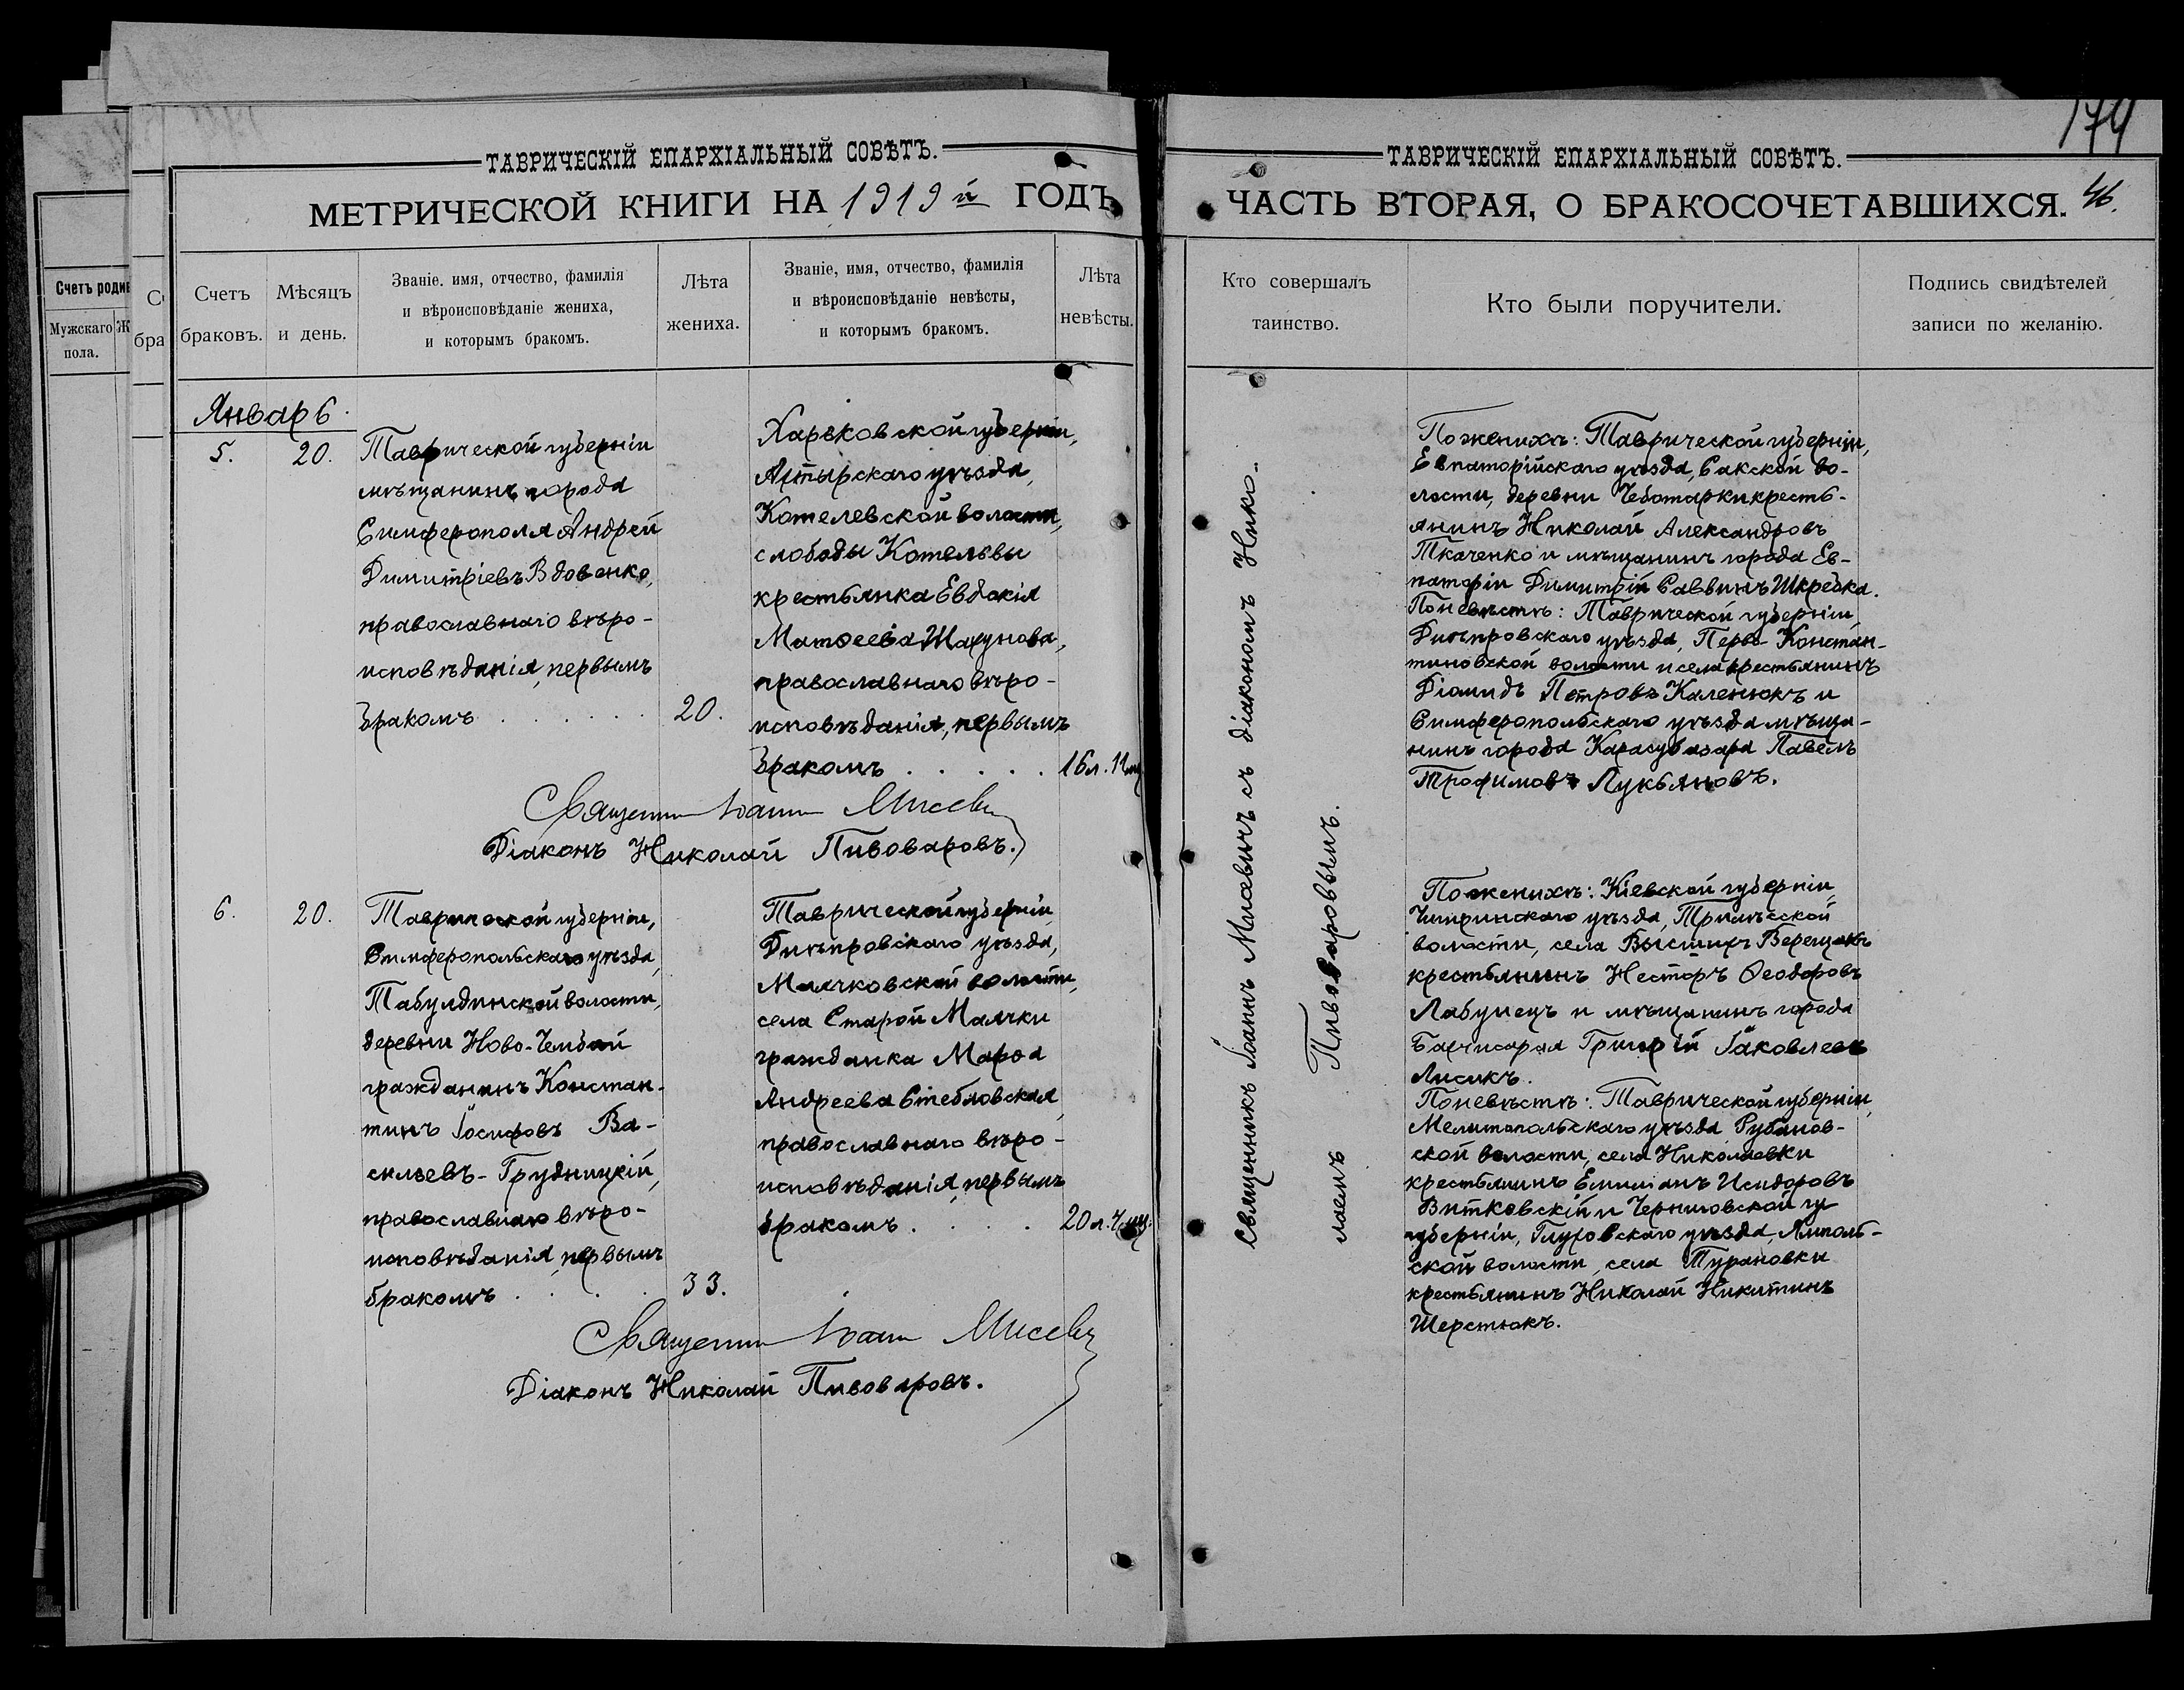 174
ТАВРИЧЕСКІЙ ЕПАРХІАЛЬНЫЙ СОВѢТЪ.
МЕТРИЧЕСКОЙ КНИГИ НА 1919й ГОДЪ
Счетъ браковъ.
Мѣсяцъ и день.
Званіе. имя, отчество, фамилія
и вѣроисповѣданіе жениха,
и которымъ бракомъ.
Лѣта
жениха.
Званіе, имя, отчество, фамилія
и вѣроисповѣданіе невѣсты,
и которымъ бракомъ.
Лѣта
невѣсты.
Счетъ родив
Мужскаго
пола.
Ж
С
бра
Январь.
5.
20.
Таврической губерніи
мѣщанинъ города
Симферополя Андрей
Димитріевъ Вдовенко,
православнаго вѣро-
исповѣданія, первымъ
бракомъ . . . . . .
20.
Харьковской губерніи,
Ахтырскаго уѣзда,
Котелевской волости,
слободы Котельвы
крестьянка Евдокія
Матѳеева Шахунова,
православнаго вѣро-
исповѣданія, первымъ
бракомъ . . . . .
16 л. 11 м.
Священни Іоаннъ Мисевичъ
Діаконъ Николай Пивоваровъ.
6.
20.
Таврической губерніи,
Симферопольскаго уѣзда,
Табулдинской волости,
деревни Ново-Чембай
гражданинъ Констан-
тинъ Іосифовъ Ва-
сильевъ-Грудницкій,
православнаго вѣро-
исповѣданія, первымъ
бракомъ . . . .
33.
Таврической губерніи
Днѣпровскаго уѣзда,
Маячковской волости,
села Старой Маячки
гражданка Марѳа
Андреева Стебловская,
православнаго вѣро-
исповѣданія, первымъ
бракомъ . . . .
20 л.
Священни Іоаннъ Мисевичъ
Діаконъ Николай Пивоваровъ.
ТАВРИЧЕСКІЙ ЕПАРХІАЛЬНЫЙ СОВѢТЪ.
ЧАСТЬ ВТОРАЯ, О БРАКОСОЧЕТАВШИХСЯ.
46.
Кто совершалъ
таинство.
Кто были поручители.
Подпись свидѣтелей
записи по желанію.
Священникъ Іоаннъ Мисевичъ съ діакономъ Нико-
лаемъ Пивоваровымъ.
По женихѣ: Таврической губерніи,
Евпаторійскаго уѣзда, Сакской во-
лости, деревни Чеботарки кресть-
янинъ Николай Александровъ
Ткаченко и мѣщанинъ города Ев-
паторіи Димитрій Саввинъ Шкребка.
По невѣстѣ: Таврической губерніи
Днѣпровскаго уѣзда, Перво-Констан-
тиновской волости и села крестьянинъ
Діомидъ Петровъ Каленюкъ и
Симферопольскаго уѣзда мѣща-
нинъ города Карасубазара Павелъ
Трофимовъ Лукьяновъ.
По женихѣ: Кіевской губерніи
Чигиринскаго уѣзда, Трилѣсской
волости, села Высшихъ Верещакъ
крестьянинъ Несторъ Ѳеодоровъ
Лабунецъ и мѣщанинъ города
Бахчисарая Григорій Іаковлевъ
Лисикъ.
По невѣстѣ: Таврической губерніи,
Мелитопольскаго уѣзда, Рубанов-
ской волости, села Николаевки
крестьянинъ Емиліанъ Исидоровъ
Витковскій и Черниговской гу
губерніи, Глуховскаго уѣзда, Ямполь-
ской волости, села Турановки
крестьянинъ Николай Никитинъ
Шерстюкъ.